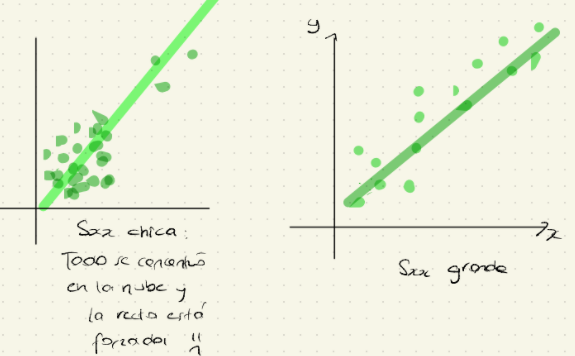 y
x
Sxx chica:
Todo se concentró
en la nube y
la recta está
forzada! !!
Sxx grande